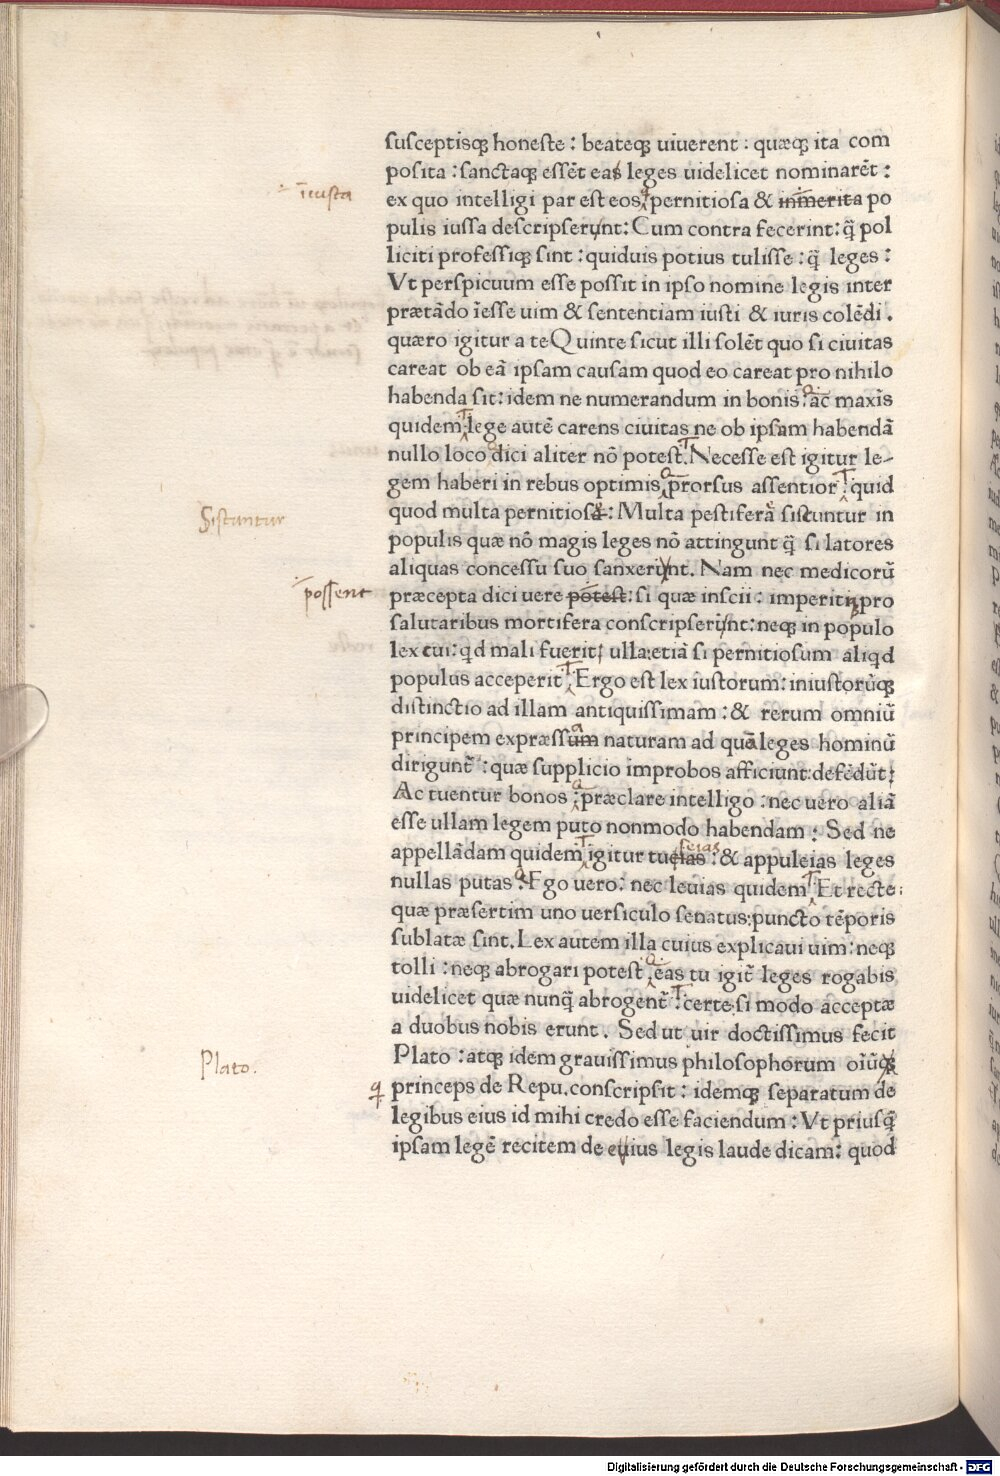 susceptisqꝫ honeste : beateqꝫ uiuerent : quæqꝫ ita com
posita : sanctaqꝫ essēt eas leges uidelicet nominarēt :
īiusta
ex quo intelligi par est eos pernitiosa & inmerita po
pulis iussa descripserunt: Cum contra fecerint: q̄ pol
liciti professiqꝫ sint : quiduis potius tulisse : q̄ leges :
Vt perspicuum esse possit in ipso nomine legis inter
prætādo īesse uim & sententiam iusti & iuris colēdi .
quæro igitur a te Quinte sicut illi solēt quo si ciuitas
careat ob eā ipsam causam quod eo careat pro nihilo
habenda sit: idem ne numerandum in bonis: ac maxīs
quidem. T lege autē carens ciuitas ne ob ipsam habendā
nullo loco dici aliter nō potest. T Necesse est igitur le-
gem haberi in rebus optimis. Q prorsus assentior T : quid
Sistuntur
quod multa pernitiosæ : Multa pestifera siscuntur in
populis quæ nō magis leges nō attingunt q̄ si latores
aliquas concessu suo sanxerunt. Nam nec medicorū
possent
præcepta dici uere potest: si quæ inscii : imperitiqꝫ pro
salutaribus mortifera conscripserunt: neqꝫ in populo
lex cui: qd mali fuerit ulla: etiā si pernitiosum aliqd
populus acceperit T : Ergo est lex iustorum: iniustorūqꝫ
distinctio ad illam antiquissimam : & rerum omniū
principem expræssum naturam ad quā leges hominū
dirigunt̄ : quæ supplicio improbos afficiunt: defēdūt:
Ac tuentur bonos : Q præclare intelligo : nec uero aliā
esse ullam legem puto nonmodo habendam : Sed ne
appellādam quidem T igitur tucias : & appuleias leges
nullas putas Q : Ego uero: nec leuias quidem T : Et recte:
quæ præsertim uno uersiculo senatus: puncto tēporis
sublatæ sint. Lex autem illa cuius explicaui uim: neqꝫ
tolli : neqꝫ abrogari potest Q : eas tu igit̄ leges rogabis
uidelicet quæ nunq̄ abrogent̄ T : certe: si modo acceptæ
a duobus nobis erunt . Sed ut uir doctissimus fecit
Plato.
Plato : atqꝫ idem grauissimus philosophorum oīūqꝫ
q princeps de Repu. conscripsit : idemqꝫ separatum de
legibus eius id mihi credo esse faciendum : Vt priusq̄
ipsam legē recitem de euius legis laude dicam: quod
Digitalisierung gefördert durch die Deutsche Forschungsgemeinschaft - DFG